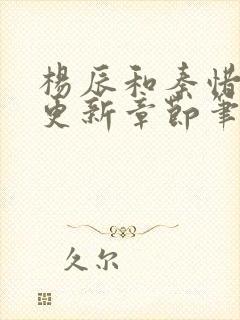 楊辰和秦惜
更新章節筆
久尔